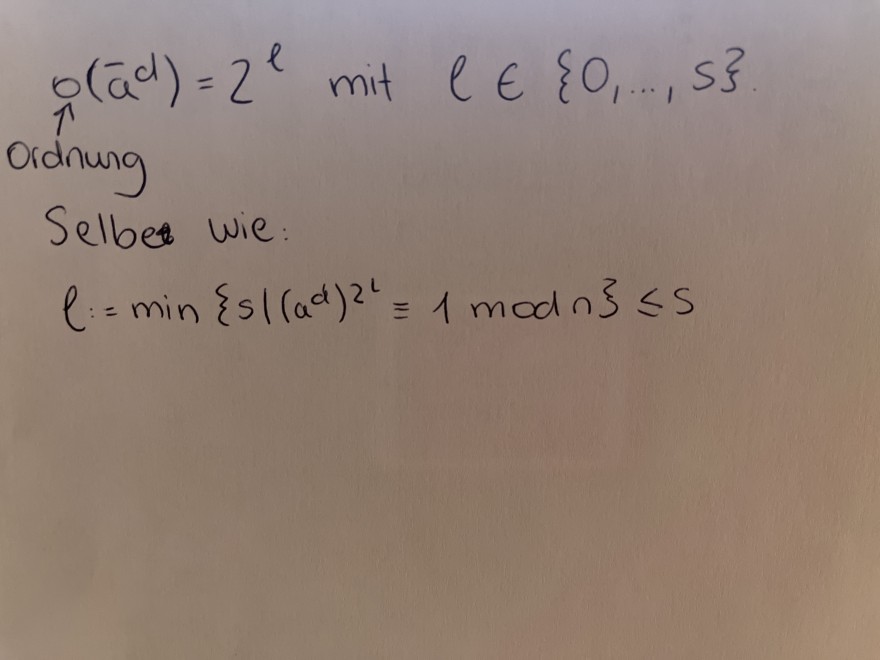 o(ā^d) = 2^ℓ mit ℓ ∈ {0,...,s}.
↑
Ordnung
Selbe wie:
ℓ := min {s | (a^d)^2^ℓ ≡ 1 mod n} ≤ s